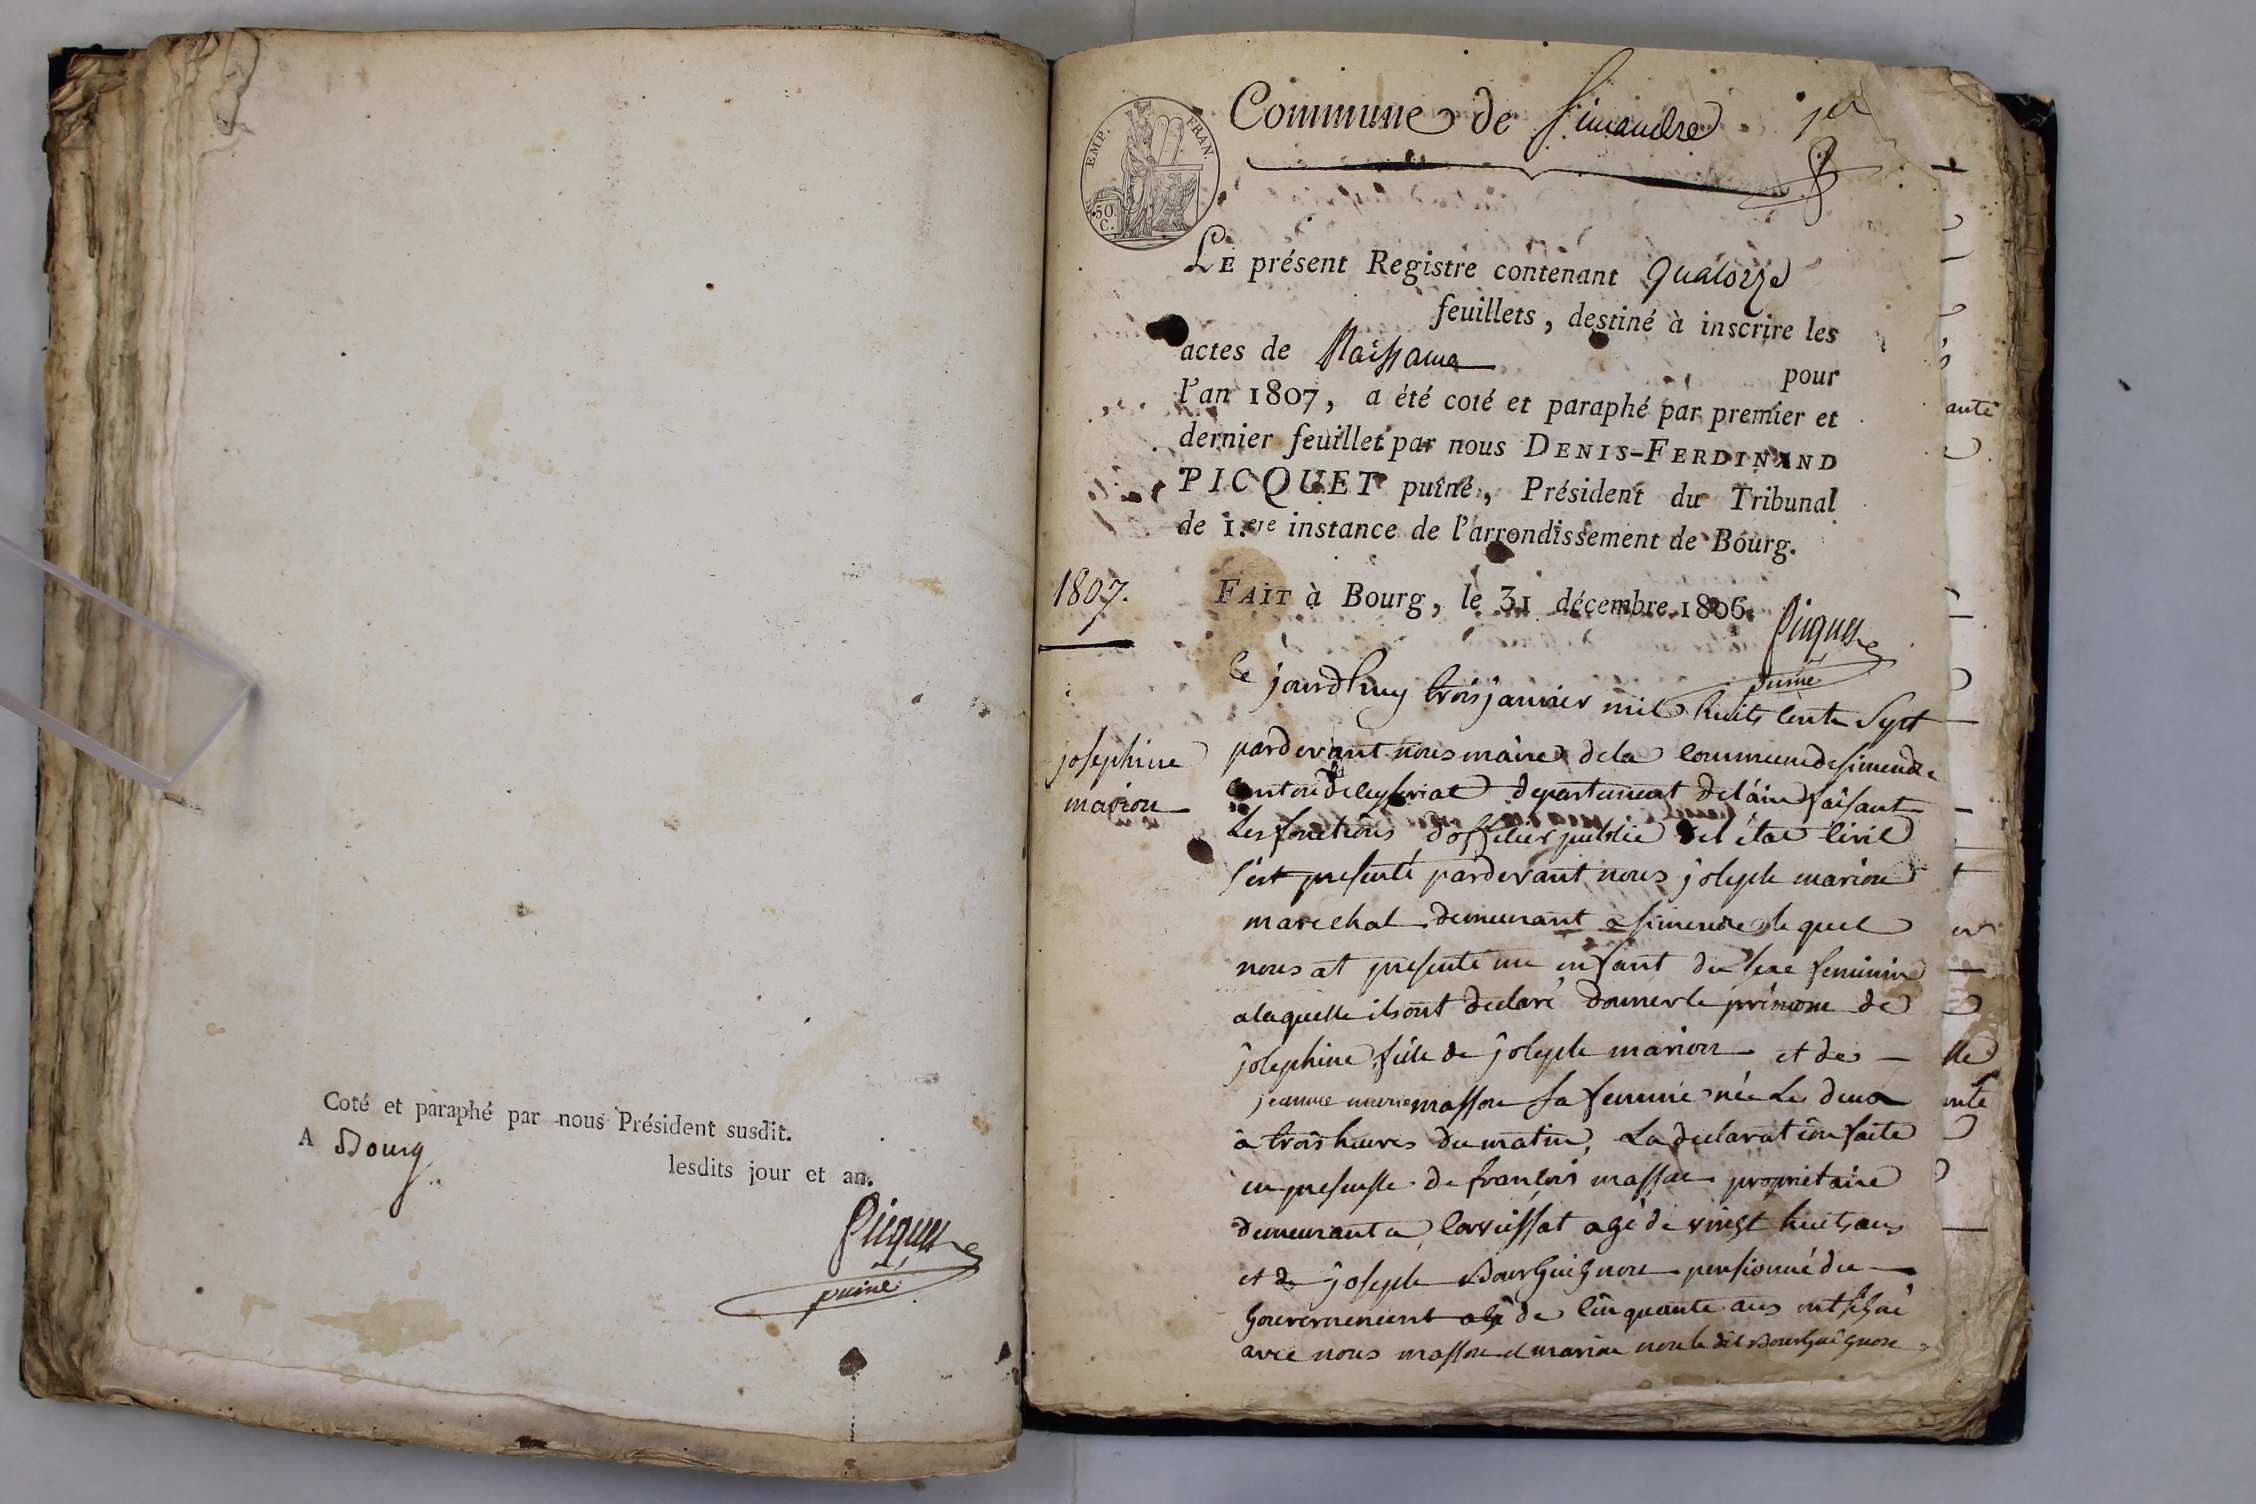 Coté et paraphé par nous Président susdit.
A Bourg
lesdits jour et an.
Picquet
puiné
EMP. FRAN.
50 C.
Commune de Simandre 1er
LE présent Registre contenant quatorze
feuillets, destiné à inscrire les
actes de Naissance
pour
l'an 1807, a été coté et paraphé par premier et
dernier feuillet par nous DENIS-FERDINAND
PICQUET puîné, Président du Tribunal
de 1.ere instance de l'arrondissement de Bourg.
1807.
FAIT à Bourg, le 31 décembre 1806.
Picquet
puiné
josephine
marion
Ce jourdhuy trois janvier mil huits cents Sept
pardevant nous maire de la commune de simendre
canton de ceyseriat departement de l'ain faisant
Les fonctions d'officier public de l état civil
s'est presenté pardevant nous joseph marion
marechal demeurant a simendre le quel
nous at presenté un enfant du sexe feminin
a laquelle ils ont declaré donner le prénom de
josephine fille de joseph marion et de
jeanne marie masson sa femme née Le deux
à trois heures du matin, La declaration faite
en presensse de françois masson propriétaire
demeurant a corveissiat agé de vingt huits ans
et de joseph Bourguignon pensionné du
gouvernement agé de cinquante ans ont signé
avec nous masson et marion non le dit Bourguignon